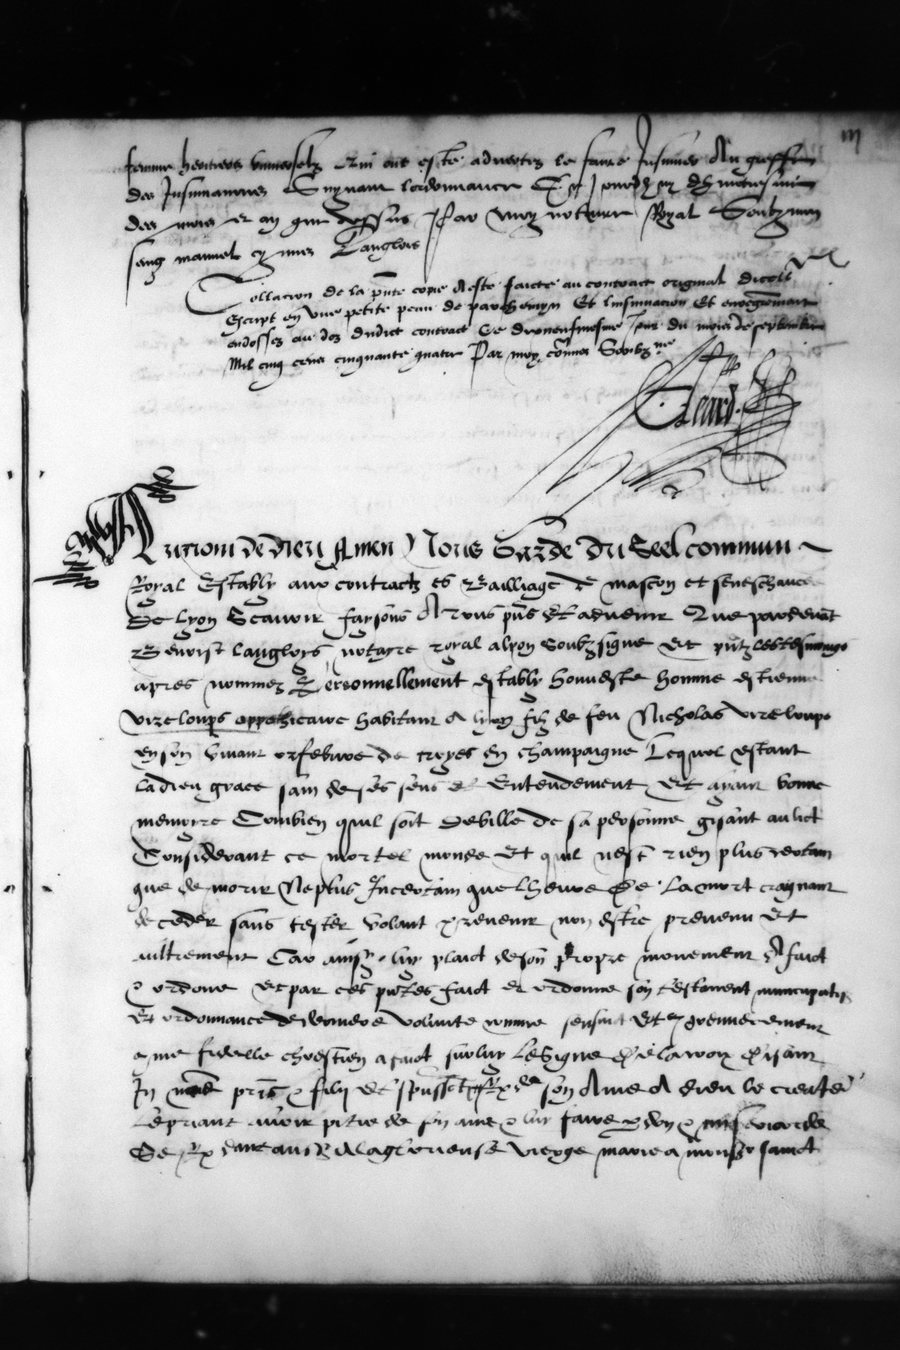 femme heritiere universelz Qui ont esté advertez le faire Insinuer Au greffe
des Insinuations Suyvant lordonnance Et
des mois et an que dessus Par moy notaire Royal Soubz mon
seing manuel cy mis Langlois
Collacion de la pnte copie A este faicte au contract original dicelle
Escript en une petite peau de parchemyn Et linsinuacion Et
endossez au doz dudict contract Ce dixneufiesme Jour du mois de septembre
Mil cinq cens cinquante quatre Par moy commis Soubzne
Cleard
Au nom de dieu Amen Nous Garde du Seel commun
Royal Estably aux contractz es Bailliage de mascon et seneschaucee
De lyon Scavoir faysons A tous pns Et advenir Que pardevat
Benoist langloys notayre royal alyon soubzsigne Et pntz les tesmoings
apres nommez Personnellement estably honneste homme estienne
vireloups appothicaire habitant a lyon filz de feu Nicholas vireloups
en son vivant orfebvre de troyes en champaigne Lequel estant
la dieu grace sain de ses sens et Entendement Et ayant bonne
memoyre Combien quil soit Debille de sa personne gisant au lict
Considerant ce mortel monde Et quil nest rien plus certain
que de morir Ne plus Incertain que lheure De la mort craignant
deceder sans tester Volant prevenir non estre prevenu Et
aultrement Car ainsy luy plaict de son propre mouvement A faict
& ordonne Et par ces pntes faict et ordonne son testament nuncupatif
Et ordonnance de derniere volunte comme sensuit Et premierement
comme fidelle chrestien a faict sur luy le signe de la croix disant
In noe pris & filij et spussti son Ame A dieu le createur
Le priant avoir pitie de son ame & luy faire pdon & misericorde
De aussi A la glorieuse vierge marie a monsr sainct